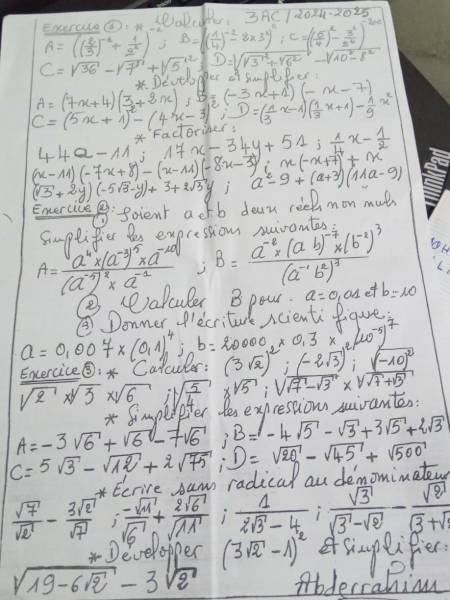 Exercice ① * Calculer : 3AC / 2024-2025
A = ((2/3)^-2 + 1/2^-2)^2 ; B = ((1/4)^-2 × 8 × 3^4)^0 ; C = ((5/4)^-2 - 3^2/5^2)^-200
C = √36 - √7² + √5² ; D = √(√3² + √6²) - √(10-8²)
* Développer et simplifier :
A = (7x+4)(3+2x) ; B = (-3x+1)(-x-7)
C = (5x+1)² - (4x-3)² ; D = (1/3 x-1)(1/3 x+1) - 1/9 x²
* Factoriser :
44a-11 ; 17x-34y+51 ; 1/4 x - 1/2
(x-11)(-7x+8) - (x-11)(-8x-3) ; x(-x+7)+x
(√3+2y)(-5√3-y)+3+2√3y ; a²-9+(a+3)(11a-9)
Exercice ② ① Soient a et b deux réels non nuls
Simplifier les expressions suivantes :
A = a^4 × (a^-3)^5 × a^-10 / (a^-5)^2 × a^-1 ; B = a^-2 × (ab)^-7 × (b^-2)^3 / (a^-1 b^2)^3
② Calculer B pour a = 0,01 et b = 10
③ Donner l'écriture scientifique :
a = 0,007 × (0,1)^4 ; b = 20000 × 0,3 × (10^-5)^7
Exercice ③ * Calculer : (3√2)² ; (-2√3)² ; √(-10)²
√2 × √3 × √6 ; √(5/4) × √5 ; √(√7-√3) × √(√7+√3)
* Simplifier les expressions suivantes :
A = -3√6 + √6 - 7√6 ; B = -4√5 - √3 + 3√5 + 2√3
C = 5√3 - √12 + 2√75 ; D = √20 - √45 + √500
* Écrire sans radical au dénominateur
√7/√2 - 3√2/√7 ; -√11/√6 + 2√6/√11 ; 1/(2√3-4) ; √3/(√3-√2) - √2/(√3+√2)
* Développer (3√2-1)² et simplifier :
√(19-6√2) - 3√2
Abderrahim
ThinkPad